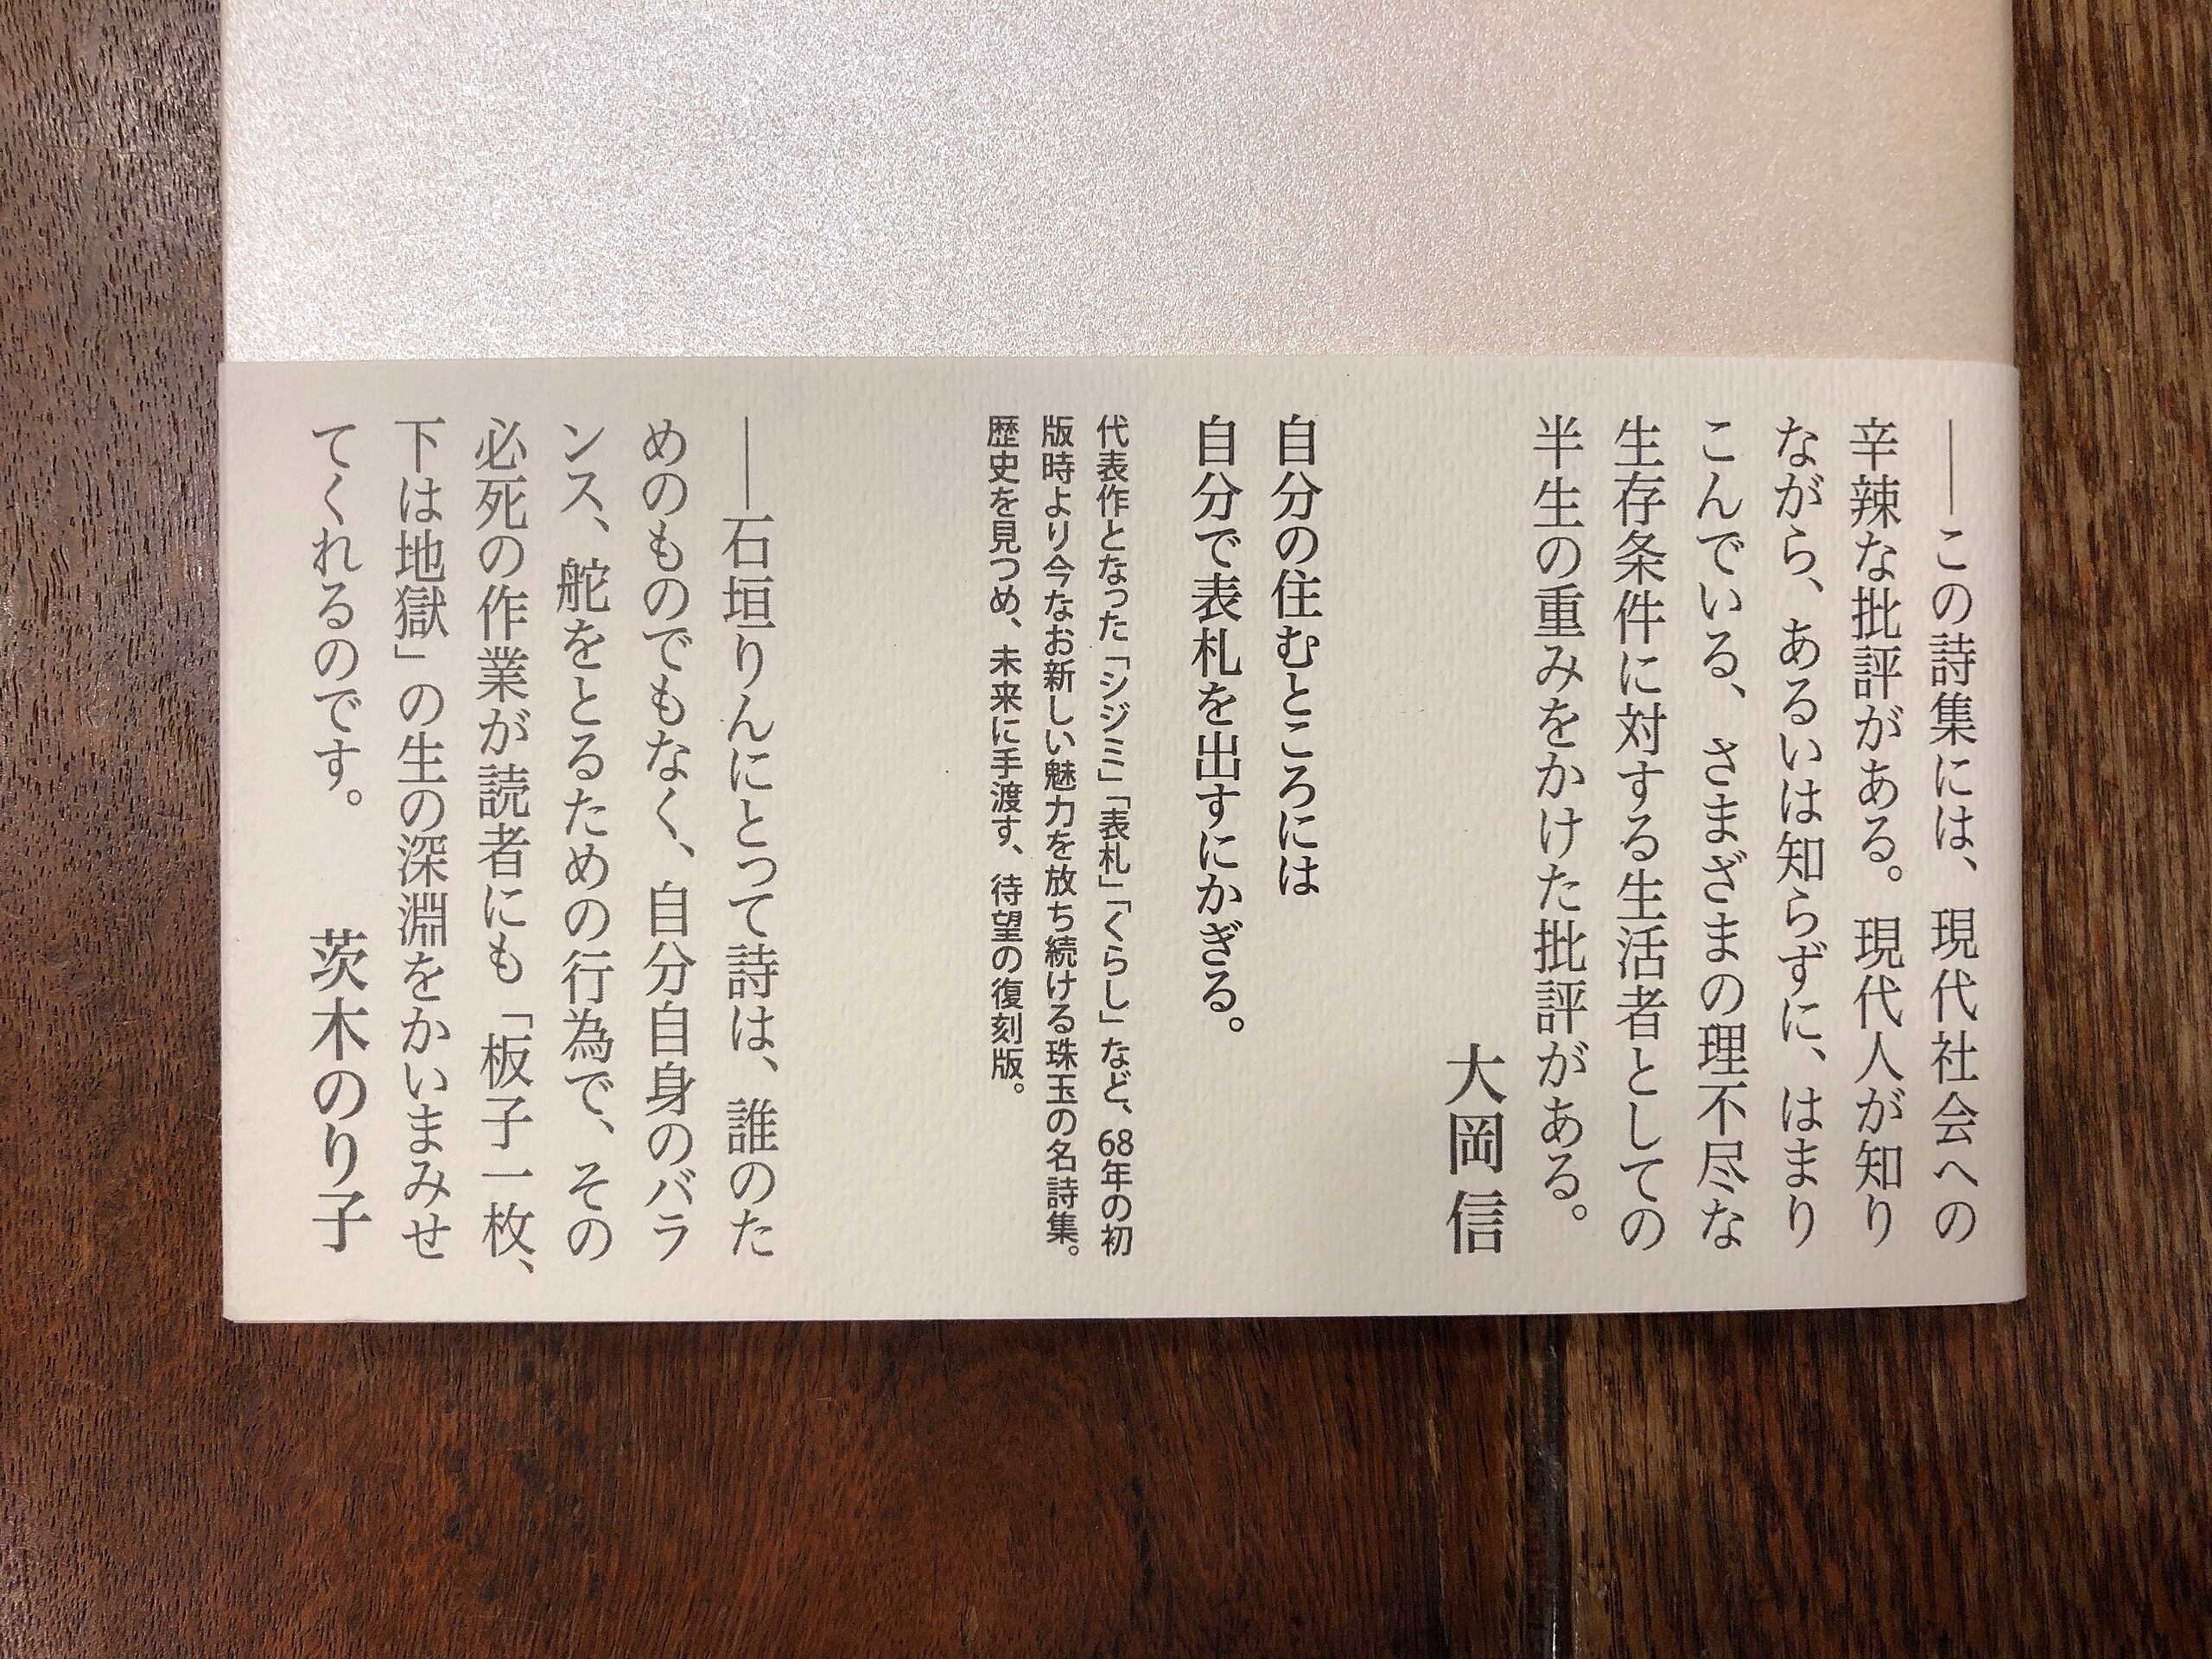 ――この詩集には、現代社会への
辛辣な批評がある。現代人が知り
ながら、あるいは知らずに、はまり
こんでいる、さまざまの理不尽な
生存条件に対する生活者としての
半生の重みをかけた批評がある。
大岡信
自分の住むところには
自分で表札を出すにかぎる。
代表作となった「シジミ」「表札」「くらし」など、68年の初
版時より今なお新しい魅力を放ち続ける珠玉の名詩集。
歴史を見つめ、未来に手渡す、待望の復刻版。
――石垣りんにとって詩は、誰のた
めのものでもなく、自分自身のバラ
ンス、舵をとるための行為で、その
必死の作業が読者にも「板子一枚、
下は地獄」の生の深淵をかいまみせ
てくれるのです。
茨木のり子